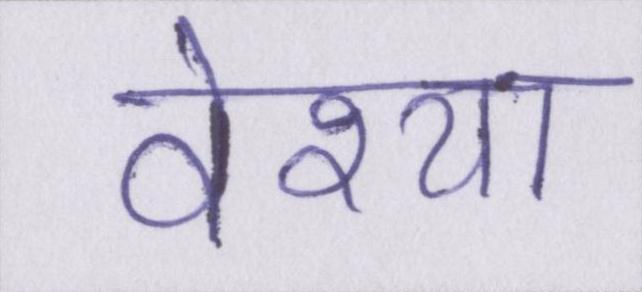 वेश्या